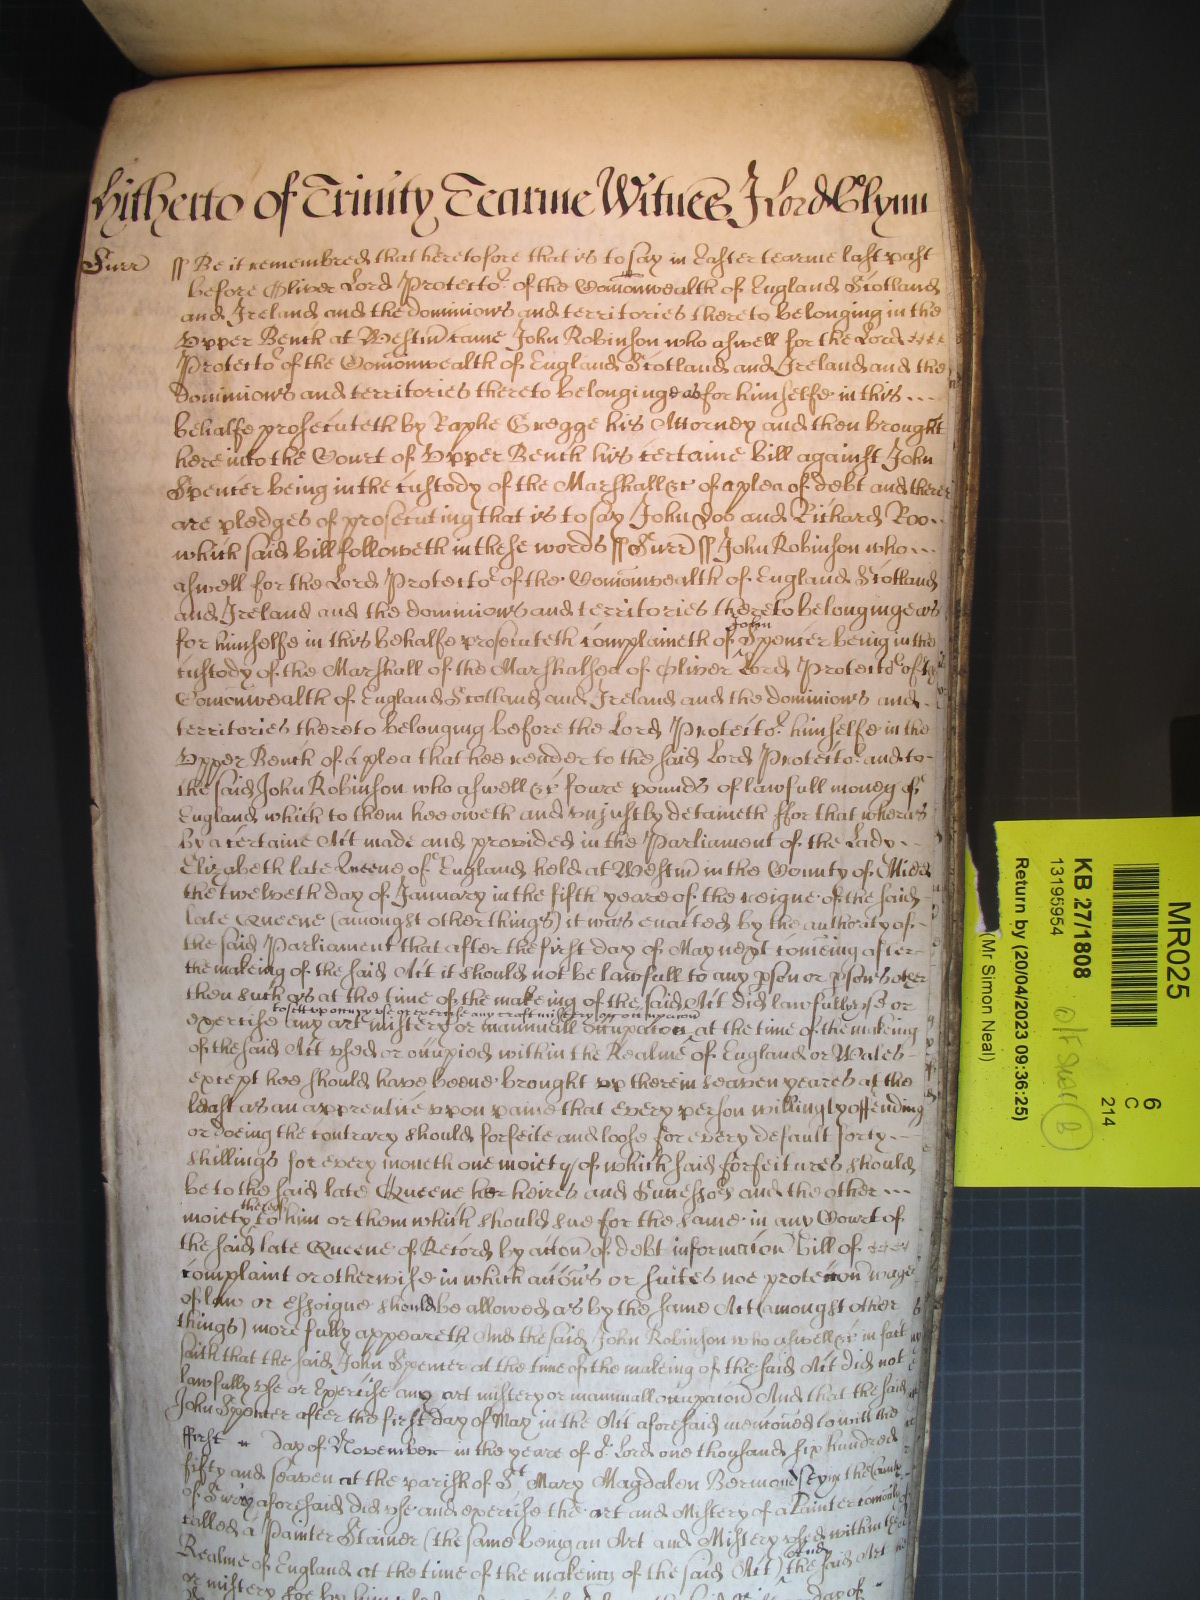 hitherto of Trinity Tearme Witnes J Lord Glynn
Surr ss Be it remembred that heretofore that is to say in Easter tearme last past
before Oliver Lord Protector of the Comonwealth of England Scotland
and Ireland and the dominions and territories thereto belonging in the
Upper Bench at Westm came John Robinson who aswell for the Lord
Protector of the Comonwealth of England Scotland and Ireland and the
dominions and territories thereto belonging as for himselfe in this
behalfe prosecuteth by Raphe Gregge his Attorney and then brought
here into the Court of Upper Bench his certaine bill against John
Spencer being in the custody of the Marshall &c of a plea of debt and there
are pledges of prosecuting that is to say John Doo and Richard Roo
which said bill followeth in these words ss Surr ss John Robinson who
aswell for the Lord Protector of the Comonwealth of England Scotland
and Ireland and the dominions and territories thereto belonging as
for himselfe in this behalfe prosecuteth complaineth of John Spencer being in the
custody of the Marshall of the Marshalsea of Oliver Lord Protector of the
Comonwealth of England Scotland and Ireland and the dominions and
territories thereto belonging before the Lord Protector himselfe in the
Upper Bench of a plea that hee render to the said Lord Protector and to
the said John Robinson who aswell &c foure pounds of lawfull money of
England which to them hee oweth and unjustly detaineth ffor that whereas
by a certaine Act made and provided in the Parliament of the Lady
Elizabeth late Queene of England held at Westm in the County of Midd
the twelveth day of January in the fifth yeare of the reigne of the said
late Queene (amongst other things) it was enacted by the authority of
the said Parliament that after the first day of May next comeing after
the makeing of the said Act it should not be lawfull to any pson or psons other
then such as at the time of the makeing of the said Act did lawfully use or
exercise any art mistery or manuall occupacon to sett up occupy use or exercise any craft mistery or occupacon at the time of the makeing
of the said Act used or occupied within the Realme of England or Wales
except hee should have beene brought up therein seaven yeares at the
least as an apprentice upon paine that every person willingly offending
or doeing the contrary should forfeite and loose for every default forty
shillings for every moneth one moiety of which said forfeitures should
be to the said late Queene her heires and Successors and the other
moiety thereof to him or them which should sue for the same in any Court of
the said late Queene of Record by accon of debt informacion bill of
complaint or otherwise in which accons or suites noe proteccon wager
of law or essoigne should be allowed as by the same Act (amongst other
things) more fully appeareth And the said John Robinson who aswell &c in fact
saith that the said John Spencer at the time of the makeing of the said Act did not
lawfully use or Exercise any art mistery or manuall occupacion And that the said
John Spencer after the first day of May in the Act aforesaid mencioned to witt the
ffirst day of November in the yeare of or Lord one thousand six hundred
fifty and seaven at the parish of St Mary Magdalen Bermondsey in the County
of Surry aforesaid did use and exercise the art and Mistery of a Painter comonly
called a Painter Stainer (the same being an Art and Mistery used within the
Realme of England at the time of the makeing of the said Act) the said Art
or mistery
day of
MR025
6
C
214
KB 27/1808
13195954
Return by (20/04/2023 09:36:25)
(Mr Simon Neal)